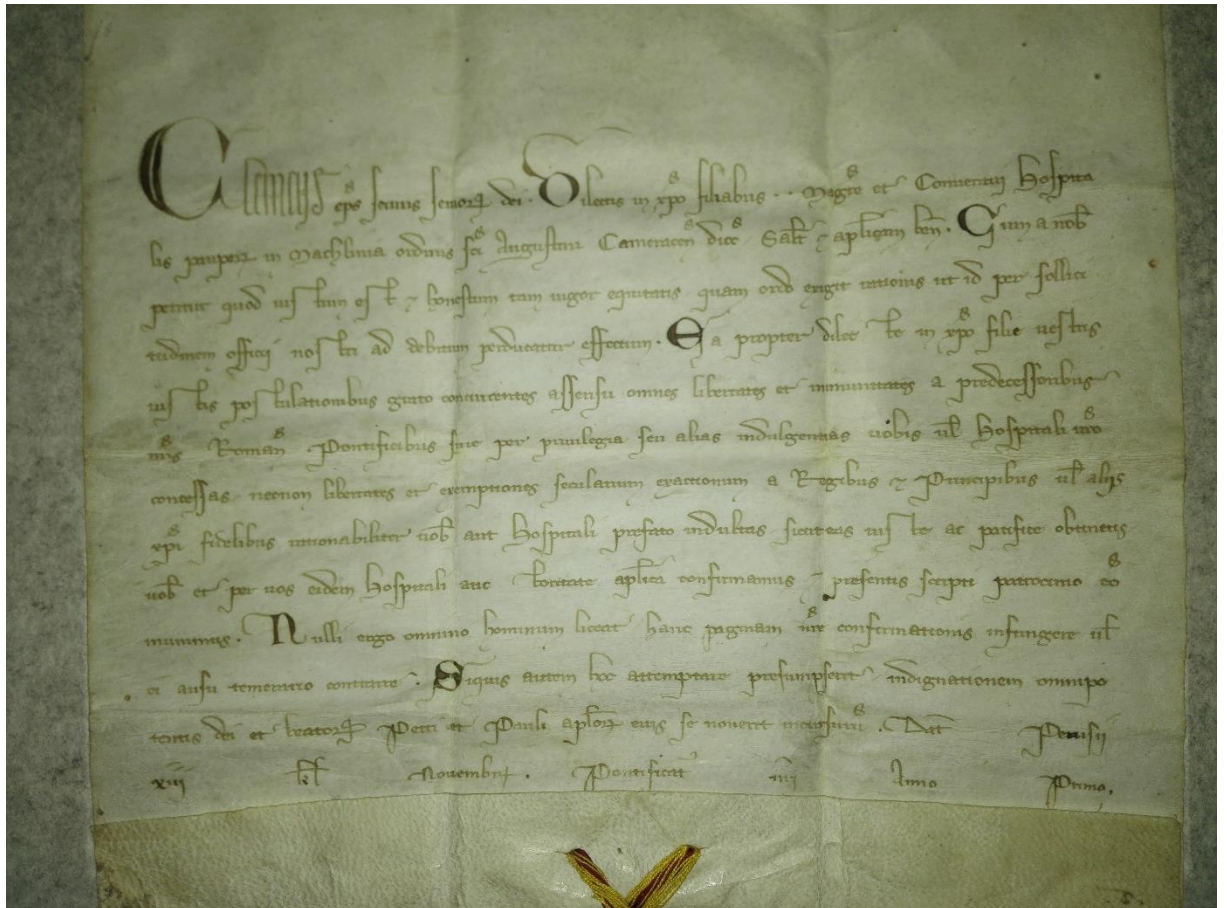 Clemens ep̄s seruus seruoꝝ dei. Dilectis in xp̄o filiabus .. Magr̄e et Conuentui Hospita
lis pauperū in Machlinia ordinis sc̄i Augustini Cameracen̄ dioc̄ Salt̄ ⁊ ap̄licam ben̄. Cum a nob̄
petitur quod iustum est ⁊ honestum tam uigor equitatis quam ordo exigit rationis ut id per sollici
tudinem officij nostri ad debitum perducatur effectum. Ea propter dilecte in xp̄o filie uestris
iustis postulationibus grato concurrentes assensu omnes libertates et immunitates a predecessoribus
nr̄is Roman̄ Pontificibus siue per priuilegia seu alias indulgentias uobis ul̄ Hospitali ur̄o
concessas necnon libertates et exemptiones secularium exactionum a Regibus ⁊ Principibus ul̄ alijs
xp̄i fidelibus rationabiliter uob̄ aut Hospitali prefato indultas sicut eas iuste ac pacifice obtinetis
uob̄ et per uos eidem Hospitali auctoritate ap̄lica confirmamus ⁊ presentis scripti patrocinio co̅
munimus. Nulli ergo omnino hominum liceat hanc paginam nr̄e confirmationis infringere ul̄
ei ausu temerario contraire. Siquis autem hoc attemptare presumpserit indignationem omnipo
tentis dei et beatoꝝ Petri et Pauli ap̄loꝝ eius se nouerit incursuꝝ. Dat̄ Perusii
xiii kl̄ Nouembꝝ. Pontificat̄ nr̄i Anno Primo.